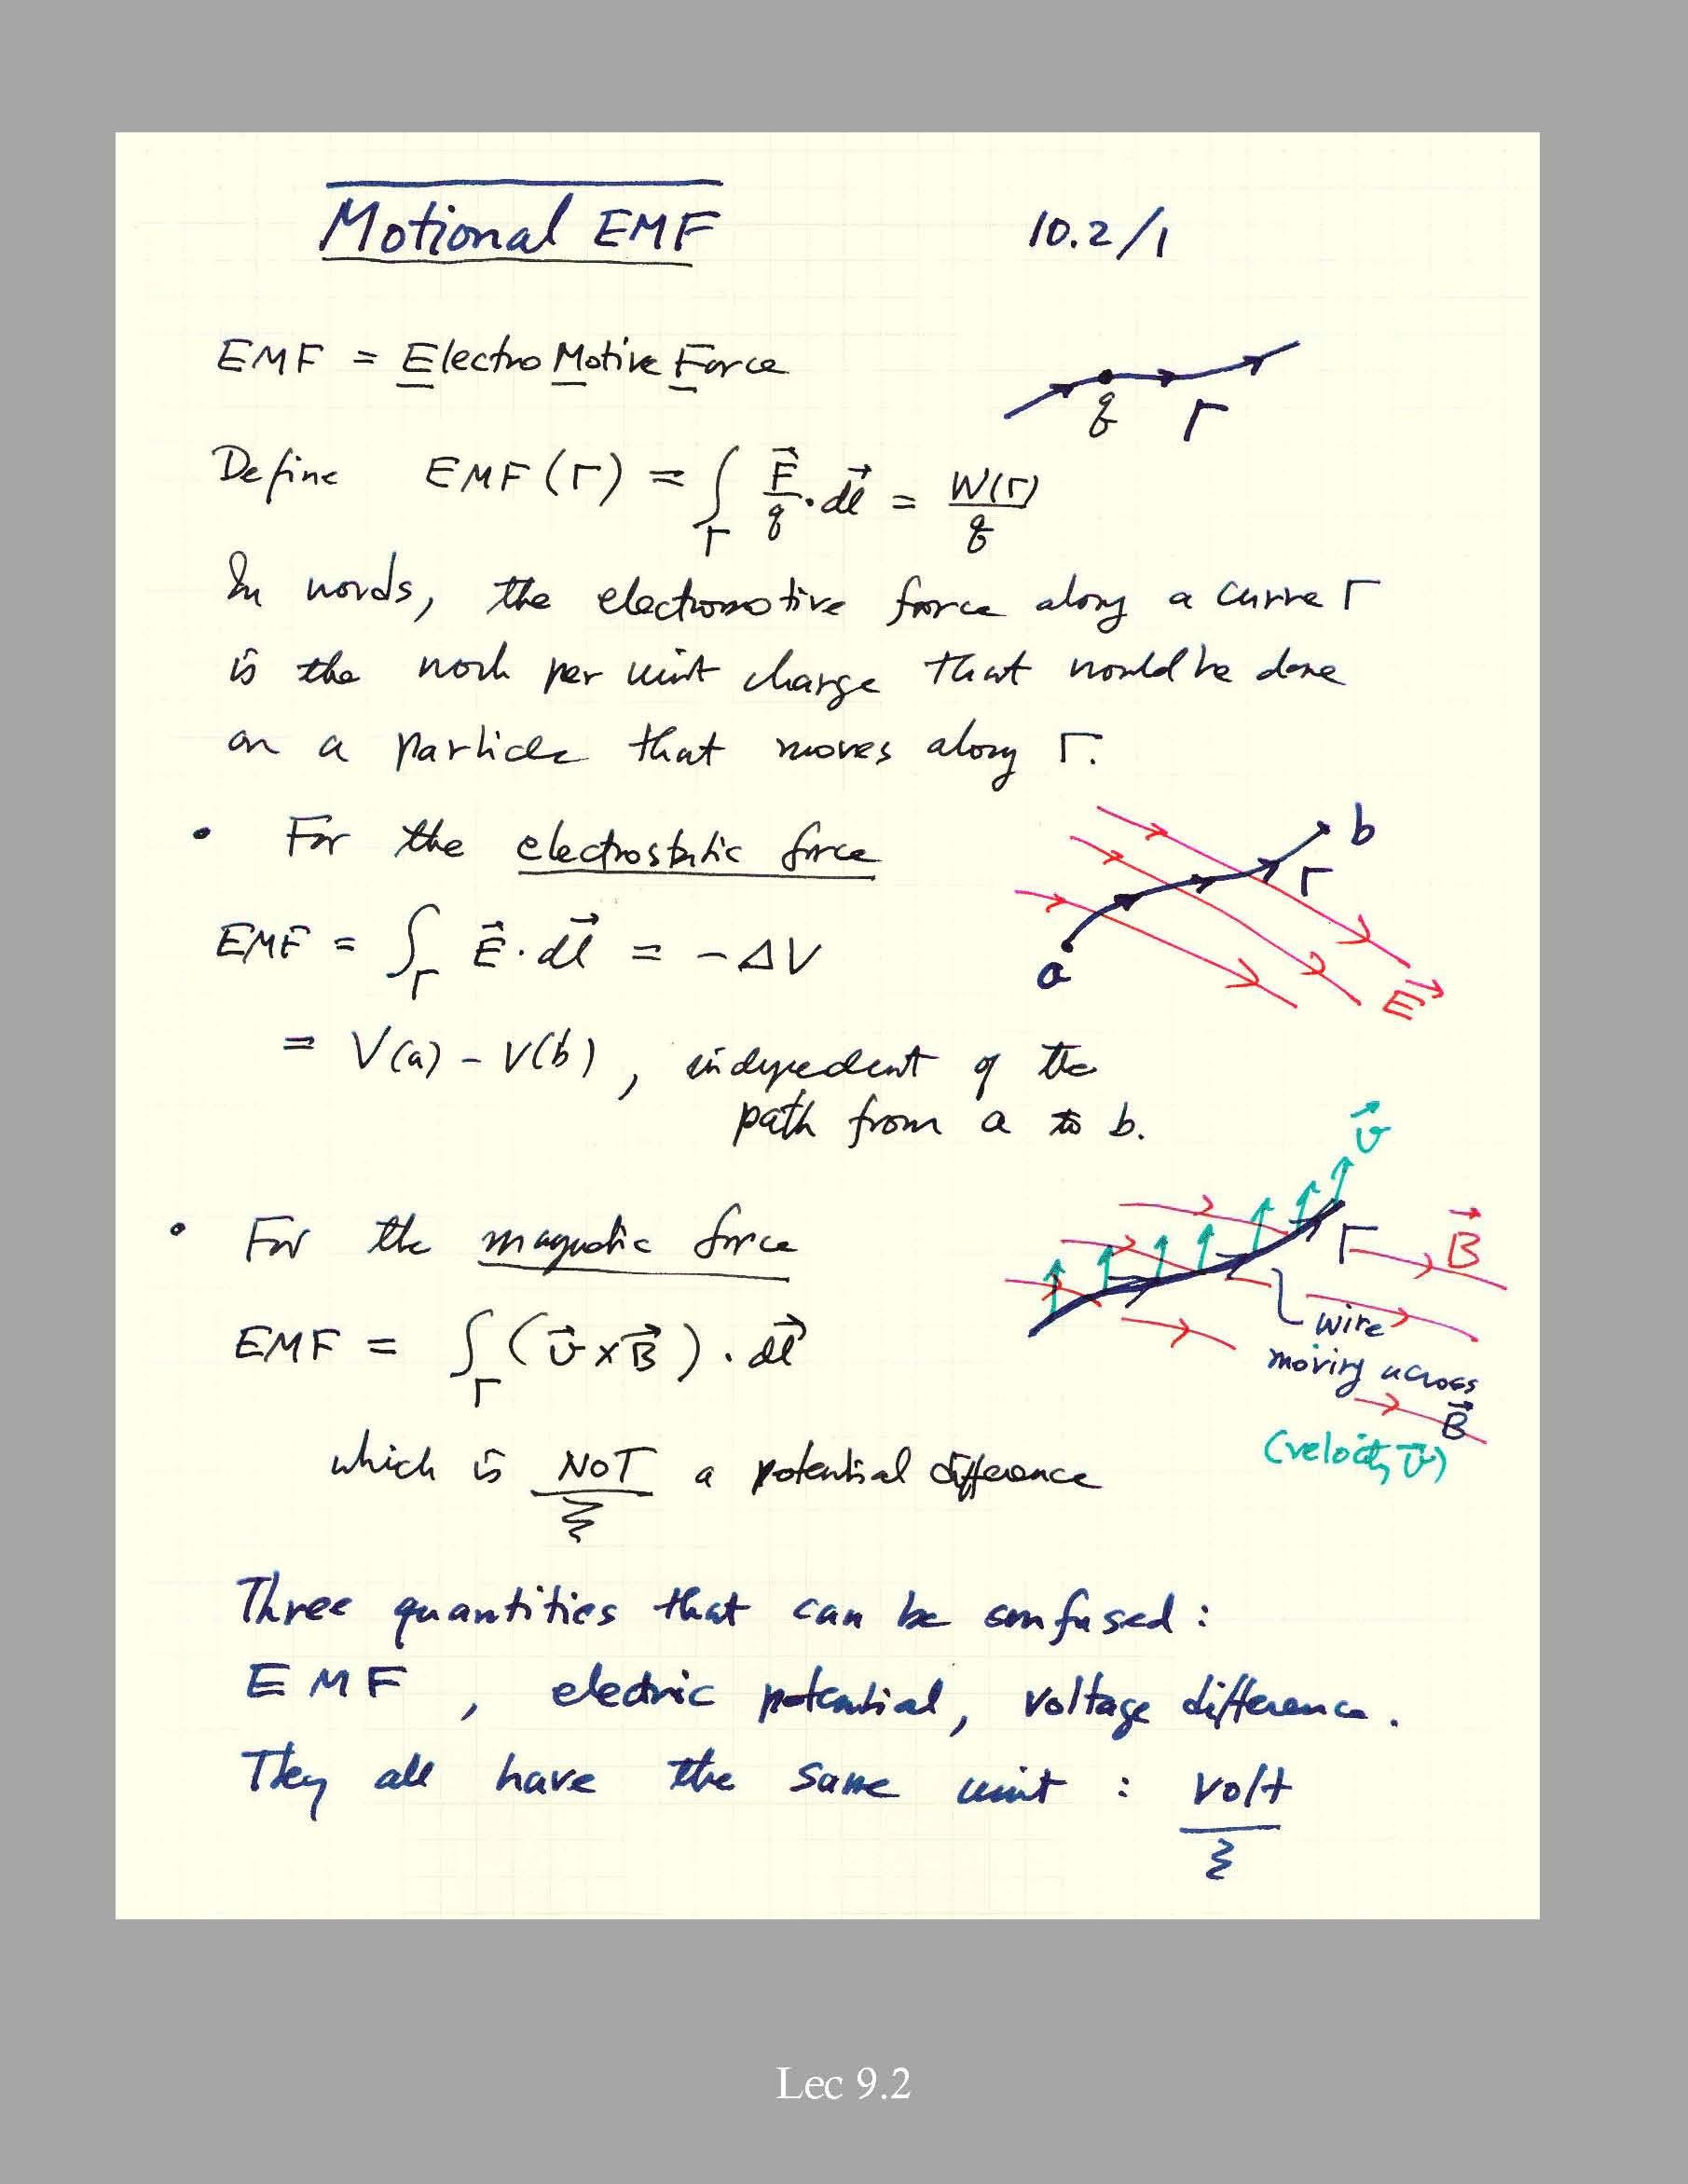 Motional EMF 10.2/1
EMF = ElectroMotive Force
q Γ
Define EMF(Γ) = ∫_Γ F⃗/q · dl⃗ = W(Γ)/q
In words, the electromotive force along a curve Γ
is the work per unit charge that would be done
on a particle that moves along Γ.
• For the electrostatic force
b
Γ
a
E⃗
EMF = ∫_Γ E⃗ · dl⃗ = -ΔV
= V(a) - V(b), indepedent of the
path from a to b.
v⃗
• For the magnetic force
Γ B⃗
wire
moving across
B⃗
(velocity v⃗)
EMF = ∫_Γ (v⃗ × B⃗) · dl⃗
which is NOT a potential difference
Three quantities that can be confused:
EMF, electric potential, voltage difference.
They all have the same unit : volt
Lec 9.2